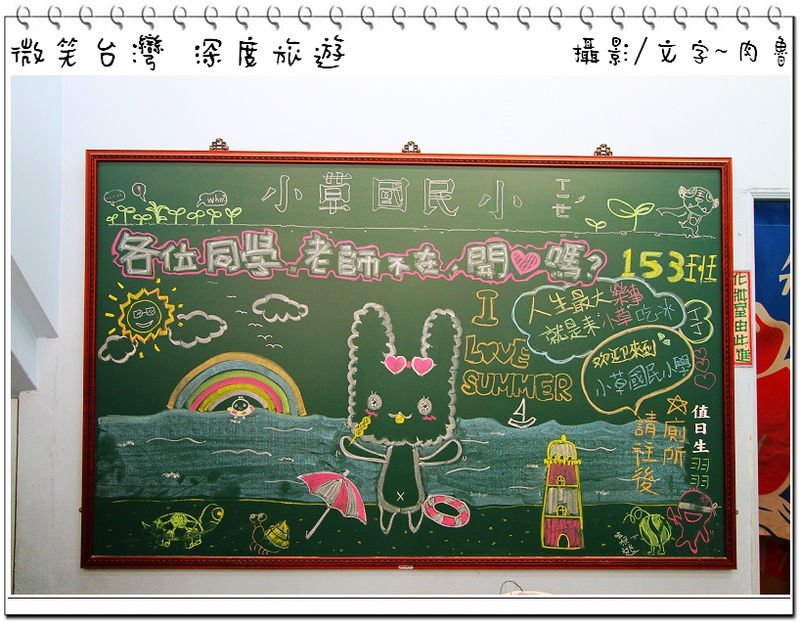 微笑台灣 深度旅遊
攝影/文字~肉魯
Who!
小草國民小
各位同學,老師不在,開♡嗎?
153班
人生最大樂事
就是來小草吃冰
I
LOVE
SUMMER
欢迎來到
小草國民小學
化妝室由此進
值日生
羽羽
☆廁所
請往後